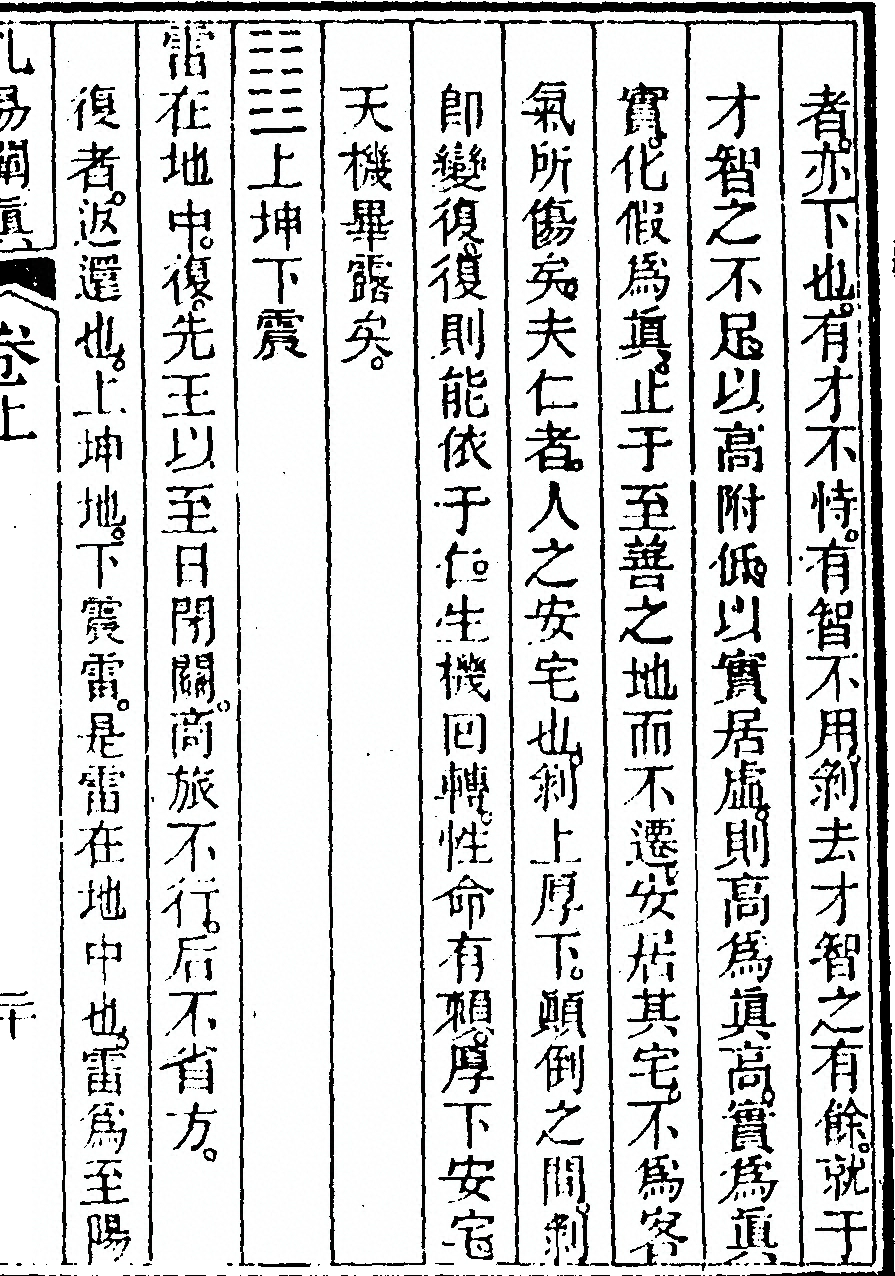 者。亦下也。有才不恃。有智不用。剝去才智之有餘。就于
才智之不足。以高附低。以實居虛。則高爲眞高。實爲眞
實。化假爲眞。止于至善之地而不遷。安居其宅。不爲客
氣所傷矣。夫仁者。人之安宅也。剝上厚下。顚倒之間。剝
卽變復。復則能依于仁。生機回轉。性命有賴。厚下安宅
天機畢露矣。
䷗上坤下震
雷在地中。復。先王以至日閉關。商旅不行。后不省方。
復者。返還也。上坤地。下震雷。是雷在地中也。雷爲至陽
孔易闡眞 卷上 二十